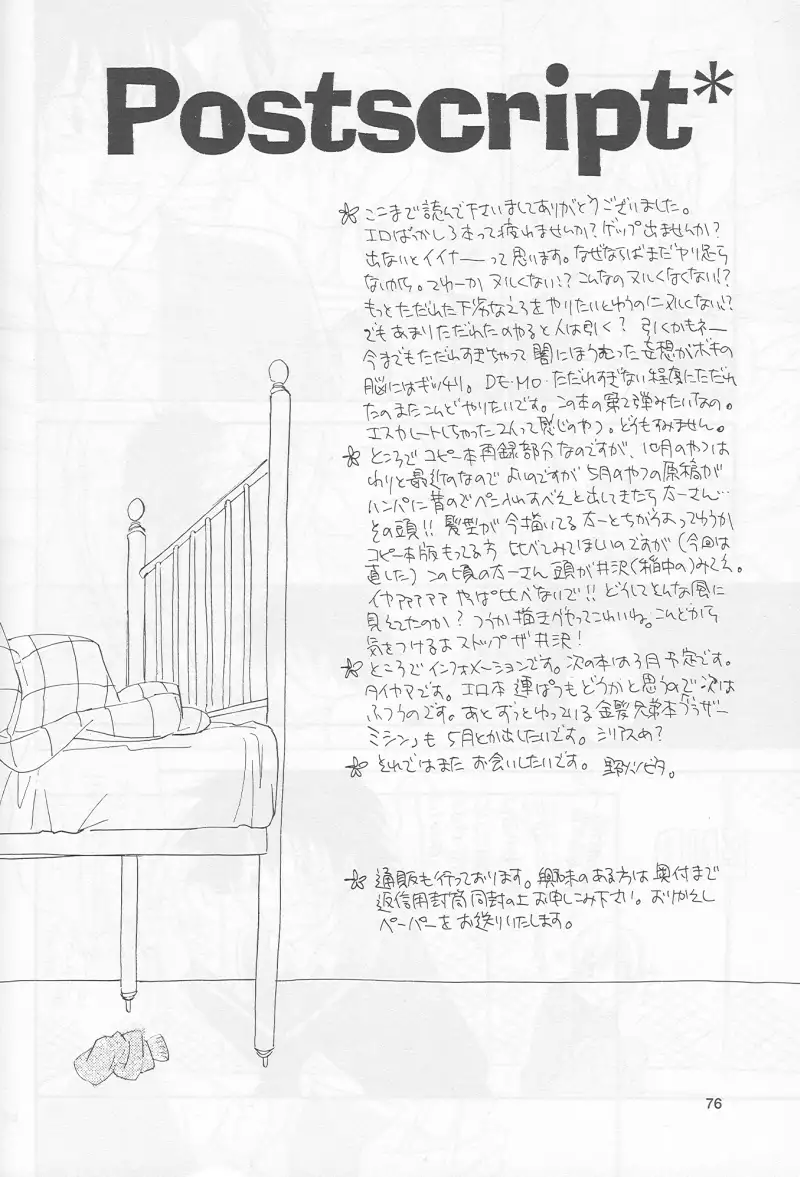 Postscript*
☆ ここまで読んで下さいましてありがとうございました。
エロばっかしろ本って疲れませんか?ゲップ出ませんか?
出ないとイイナーーって思います。なぜならばまだヤリ足ら
ないから。でわーか ヌルくない!? こんなの ヌルくなくない!?
もっとただれた下劣なえろをやりたいとゆうのに ヌルくない!?
でもあまりただれたのやると人は引く? 引くかもネー
今までもただれすぎちゃって闇にほうむった妄想がボキの
脳にはギッシリ。DE・MO・ただれすぎない程度にただれ
たのまたこんどやりたいです。この本の第2弾みたいなの。
エスカレートしちゃった2人って感じのやつ。どうもすみません。
☆ ところでコピー本再録部分なのですが、10月のやつは
わりと最近のなのでよいのですが5月のやつの原稿が
ハンパに昔のでペン入れすべえと出してきたら太一さん…
その頭!! 髪型が今描いてる太一とちがうよってゆうか
コピー本版もってる方 比べてみてほしいのですが(今回は
直した)この頃の太一さん頭が井沢(稲中の)みてえ。
イヤアアアアア やっぱ比べないで!! どうしてこんな風に
見えてたのか? つうか描き〜やってこわいね。こんどから
気をつけるよストップ ザ 井沢!
☆ ところでインフォメーションです。次の本は3月予定です。
タイヤマです。エロ本 連ぱつもどうかと思うので次は
ふつうのです。あとずっとゆっている金髪兄弟本「ブラザー
ミシン」も 5月とか出したいです。シリアスめ?
☆ それではまた お会いしたいです。 野火ノビタ。
☆ 通販も行っております。興味のある方は奥付まで
返信用封筒同封の上 お申しこみ下さい。おりかえし
ペーパーをお送りいたします。
76